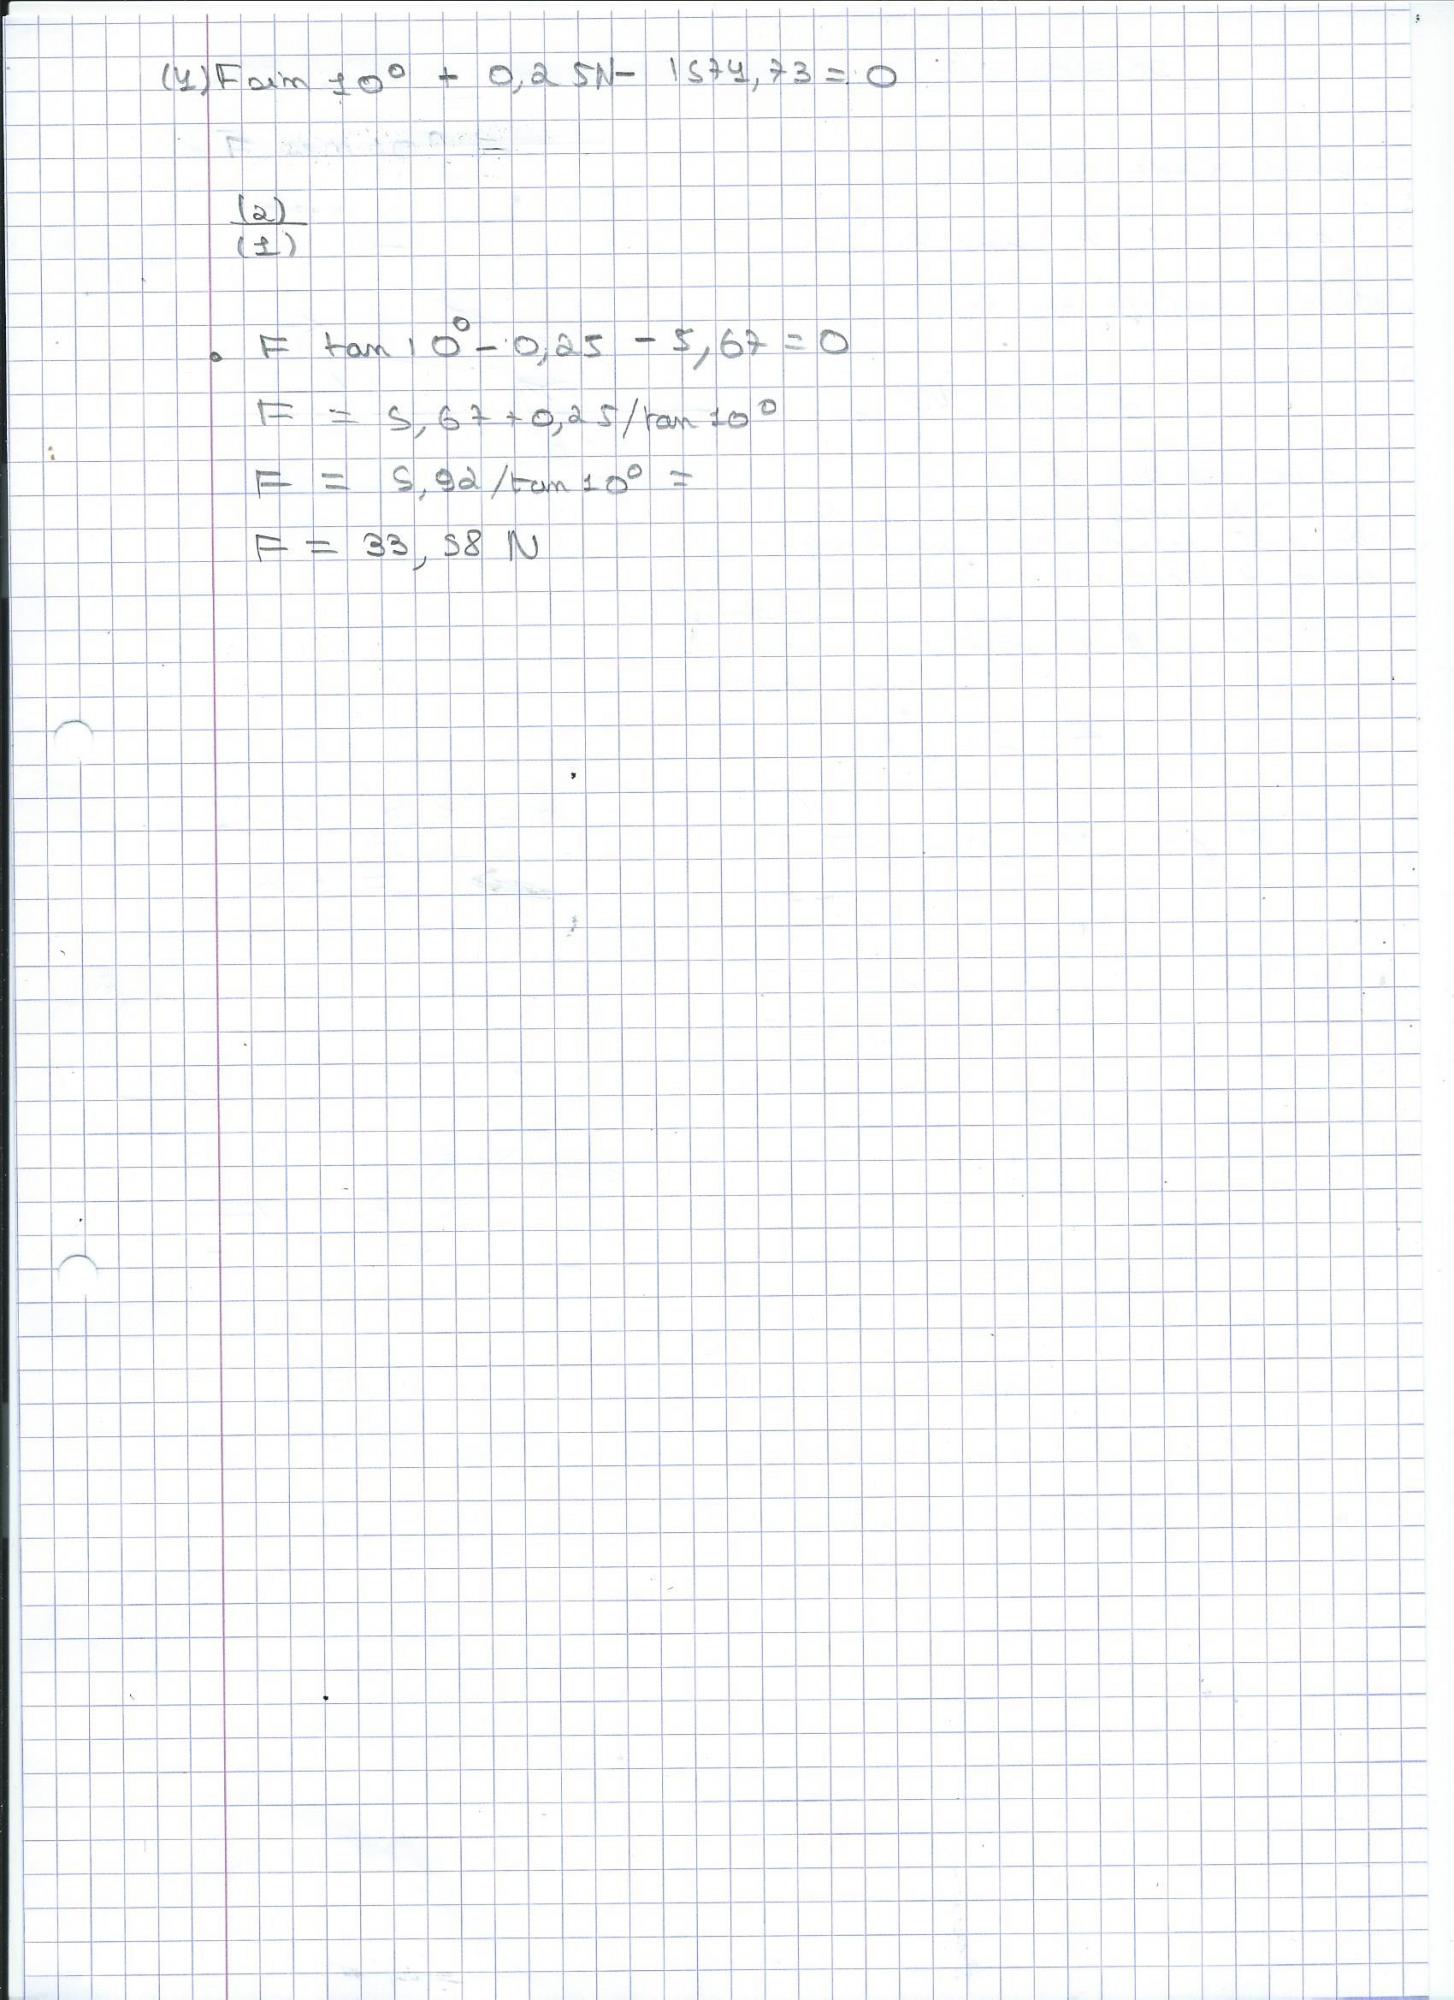 (1) F sin 10° + 0,25N - 1571,73 = 0
=
(2)
(1)
F tan 10° - 0,25 - 5,67 = 0
F = 5,67 + 0,25/tan 10°
F = 5,92/tan 10° =
F = 33,58 N